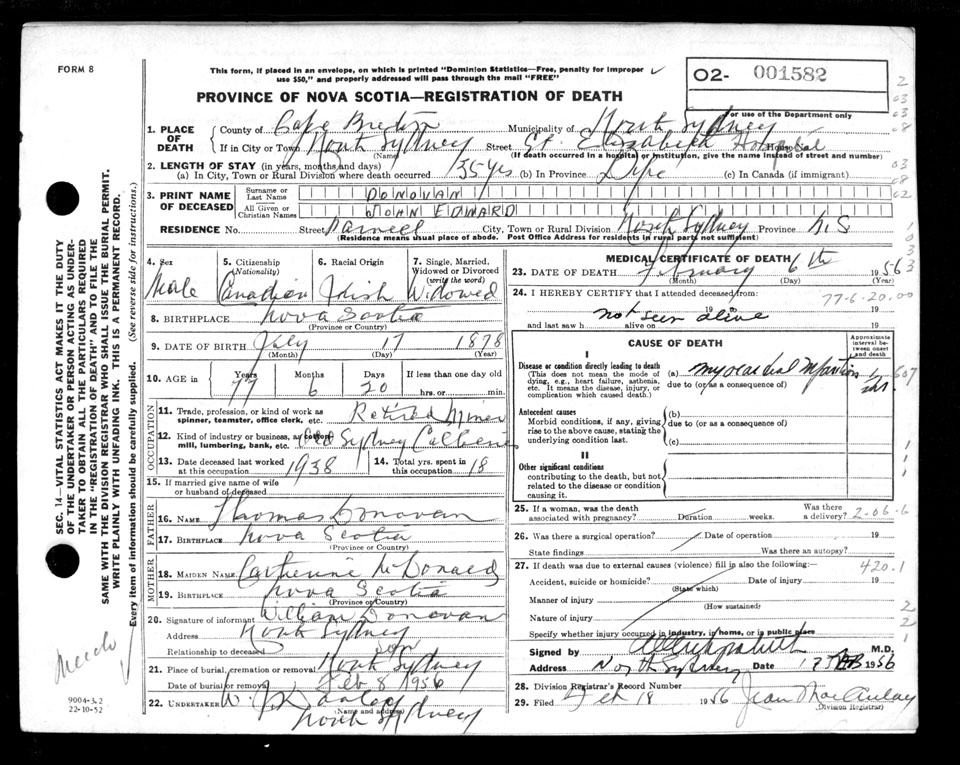 FORM 8
This form, if placed in an envelope, on which is printed "Dominion Statistics—Free, penalty for improper
use $50," and properly addressed will pass through the mail "FREE"
O2- 001582
For use of the Department only
PROVINCE OF NOVA SCOTIA—REGISTRATION OF DEATH
1. PLACE OF DEATH
County of Cape Breton Municipality of North Sydney
If in City or Town North Sydney Street St. Elizabeth Hospital
(Name) (If death occurred in a hospital or institution, give the name instead of street and number)
2. LENGTH OF STAY (in years, months and days)
(a) In City, Town or Rural Division where death occurred 35 yrs (b) In Province Life (c) In Canada (if immigrant)
3. PRINT NAME OF DECEASED
Surname or Last Name DONOVAN
All Given or Christian Names JOHN EDWARD
RESIDENCE No. Street Parnell City, Town or Rural Division North Sydney Province N S
(Residence means usual place of abode. Post Office Address for residents in rural parts not sufficient)
4. Sex Male
5. Citizenship (Nationality) Canadian
6. Racial Origin Irish
7. Single, Married, Widowed or Divorced (write the word) Widowed
8. BIRTHPLACE Nova Scotia
(Province or Country)
9. DATE OF BIRTH July 17 1878
(Month) (Day) (Year)
10. AGE in Years Months Days If less than one day old
77 6 20 hrs. or min.
OCCUPATION
11. Trade, profession, or kind of work as spinner, teamster, office clerk, etc. Retired Miner
12. Kind of industry or business, as cotton mill, lumbering, bank, etc. Old Sydney Collieries
13. Date deceased last worked at this occupation 1938
14. Total yrs. spent in this occupation 18
15. If married give name of wife or husband of deceased
FATHER
16. NAME Thomas Donovan
17. BIRTHPLACE Nova Scotia
(Province or Country)
MOTHER
18. MAIDEN NAME Catherine McDonald
19. BIRTHPLACE Nova Scotia
(Province or Country)
20. Signature of informant William Donovan
Address North Sydney
Relationship to deceased son
21. Place of burial, cremation or removal North Sydney
Date of burial or removal Feb 8 1956
22. UNDERTAKER W. J. Dunlop
(Name and address)
North Sydney
MEDICAL CERTIFICATE OF DEATH
23. DATE OF DEATH February 6th 1956
(Month) (Day)
24. I HEREBY CERTIFY that I attended deceased from:
77-6-20.00
19 to 19
not seen alive
and last saw h alive on 19
CAUSE OF DEATH
Approximate interval between onset and death
I
Disease or condition directly leading to death
(This does not mean the mode of dying, e.g., heart failure, asthenia, etc. It means the disease, injury, or complication which caused death.)
(a) myocardial infarction
due to (or as a consequence of)
Antecedent causes
Morbid conditions, if any, giving rise to the above cause, stating the underlying condition last.
(b)
due to (or as a consequence of)
(c)
II
Other significant conditions
contributing to the death, but not related to the disease or condition causing it.
25. If a woman, was the death associated with pregnancy? Duration weeks. Was there a delivery? 2-06-6
26. Was there a surgical operation? Date of operation 19
State findings Was there an autopsy?
27. If death was due to external causes (violence) fill in also the following:
420.1
Accident, suicide or homicide? Date of injury 19
(State which)
Manner of injury
(How sustained)
Nature of injury
Specify whether injury occurred in industry, in home, or in public place
Signed by M.D.
Address North Sydney Date 17 FEB 1956
28. Division Registrar's Record Number
29. Filed Feb 18 1956 Jean MacAulay
(Division Registrar)
SEC. 14—VITAL STATISTICS ACT MAKES IT THE DUTY
OF THE UNDERTAKER OR PERSON ACTING AS UNDER-
TAKER TO OBTAIN ALL THE PARTICULARS REQUIRED
IN THE "REGISTRATION OF DEATH" AND TO FILE THE
SAME WITH THE DIVISION REGISTRAR WHO SHALL ISSUE THE BURIAL PERMIT.
WRITE PLAINLY WITH UNFADING INK. THIS IS A PERMANENT RECORD.
Every item of information should be carefully supplied. (See reverse side for instructions.)
9004-3.2
22-10-52